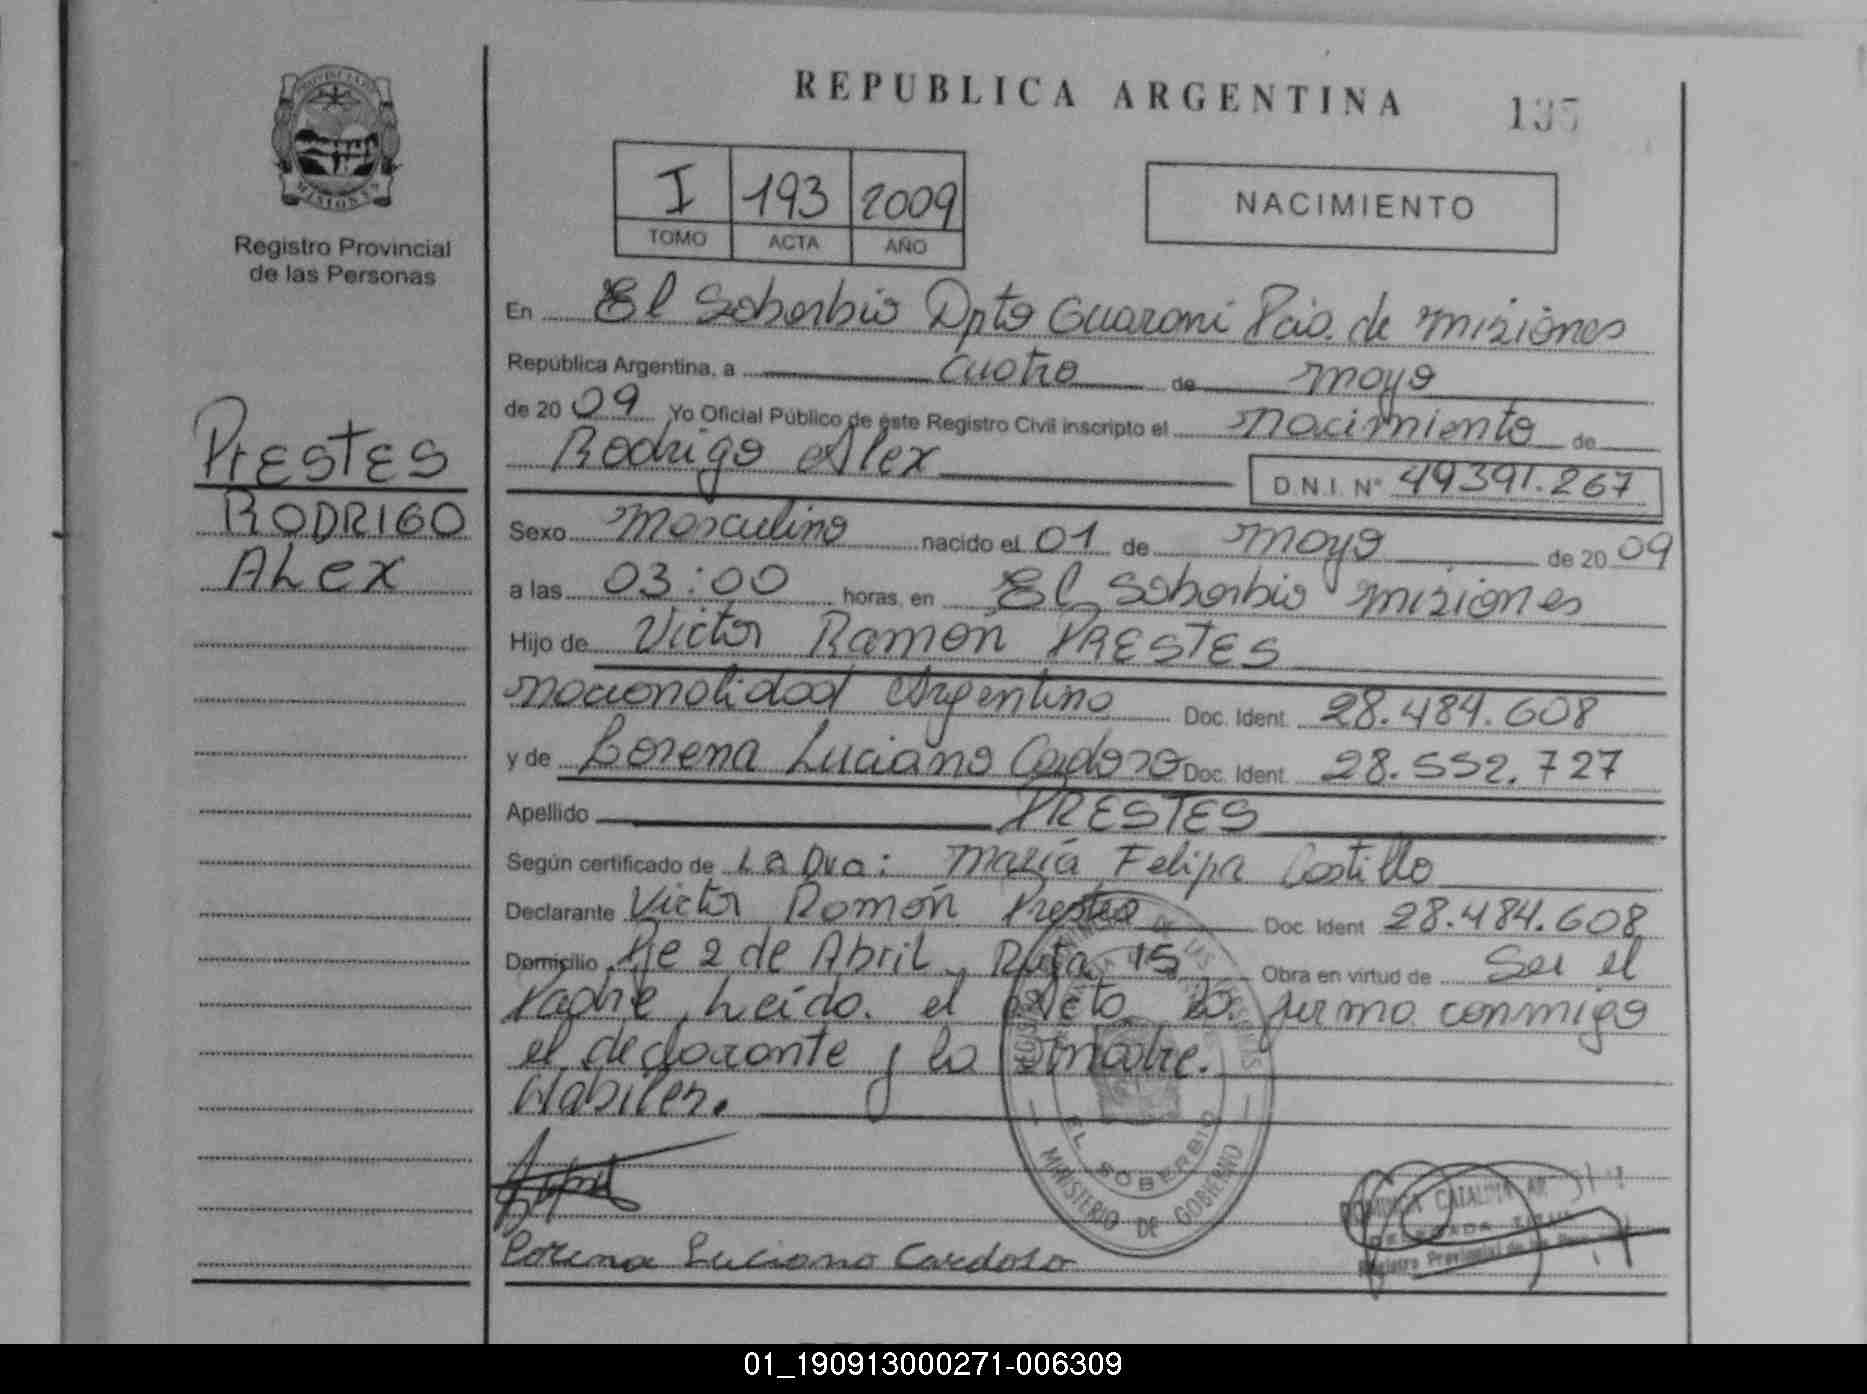 REPUBLICA ARGENTINA
135
PROVINCIA DE
MISIONES
Registro Provincial
de las Personas
I 193 2009
TOMO ACTA AÑO
NACIMIENTO
En El Soberbio Dpto Guarani Pcia. de misiones
República Argentina, a cuatro de mayo
de 2009 Yo Oficial Público de éste Registro Civil inscripto el nacimiento de
Rodrigo Alex
D.N.I. Nº 49391.267
PrEstES
RODRIGO
ALex
Sexo masculino nacido el 01 de mayo de 2009
a las 03:00 horas, en El Soberbio misiones
Hijo de Victor Ramón PRESTES
nacionalidad Argentino Doc. Ident. 28.484.608
y de Lorena Luciana Cardozo Doc. Ident. 28.552.727
Apellido PRESTES
Según certificado de La Dra: María Felipa Castillo
Declarante Victor Ramón Prestes Doc. Ident 28.484.608
Domicilio Pje 2 de Abril, Ruta 15 Obra en virtud de Ser el
Padre, Leída. el Acta, la firma conmigo
el declarante y la madre.
Habiles.
EL SOBERBIO
MINISTERIO DE GOBIERNO
Lorena Luciana Cardozo
CATALINA
Registro Provincial de las
01_190913000271-006309